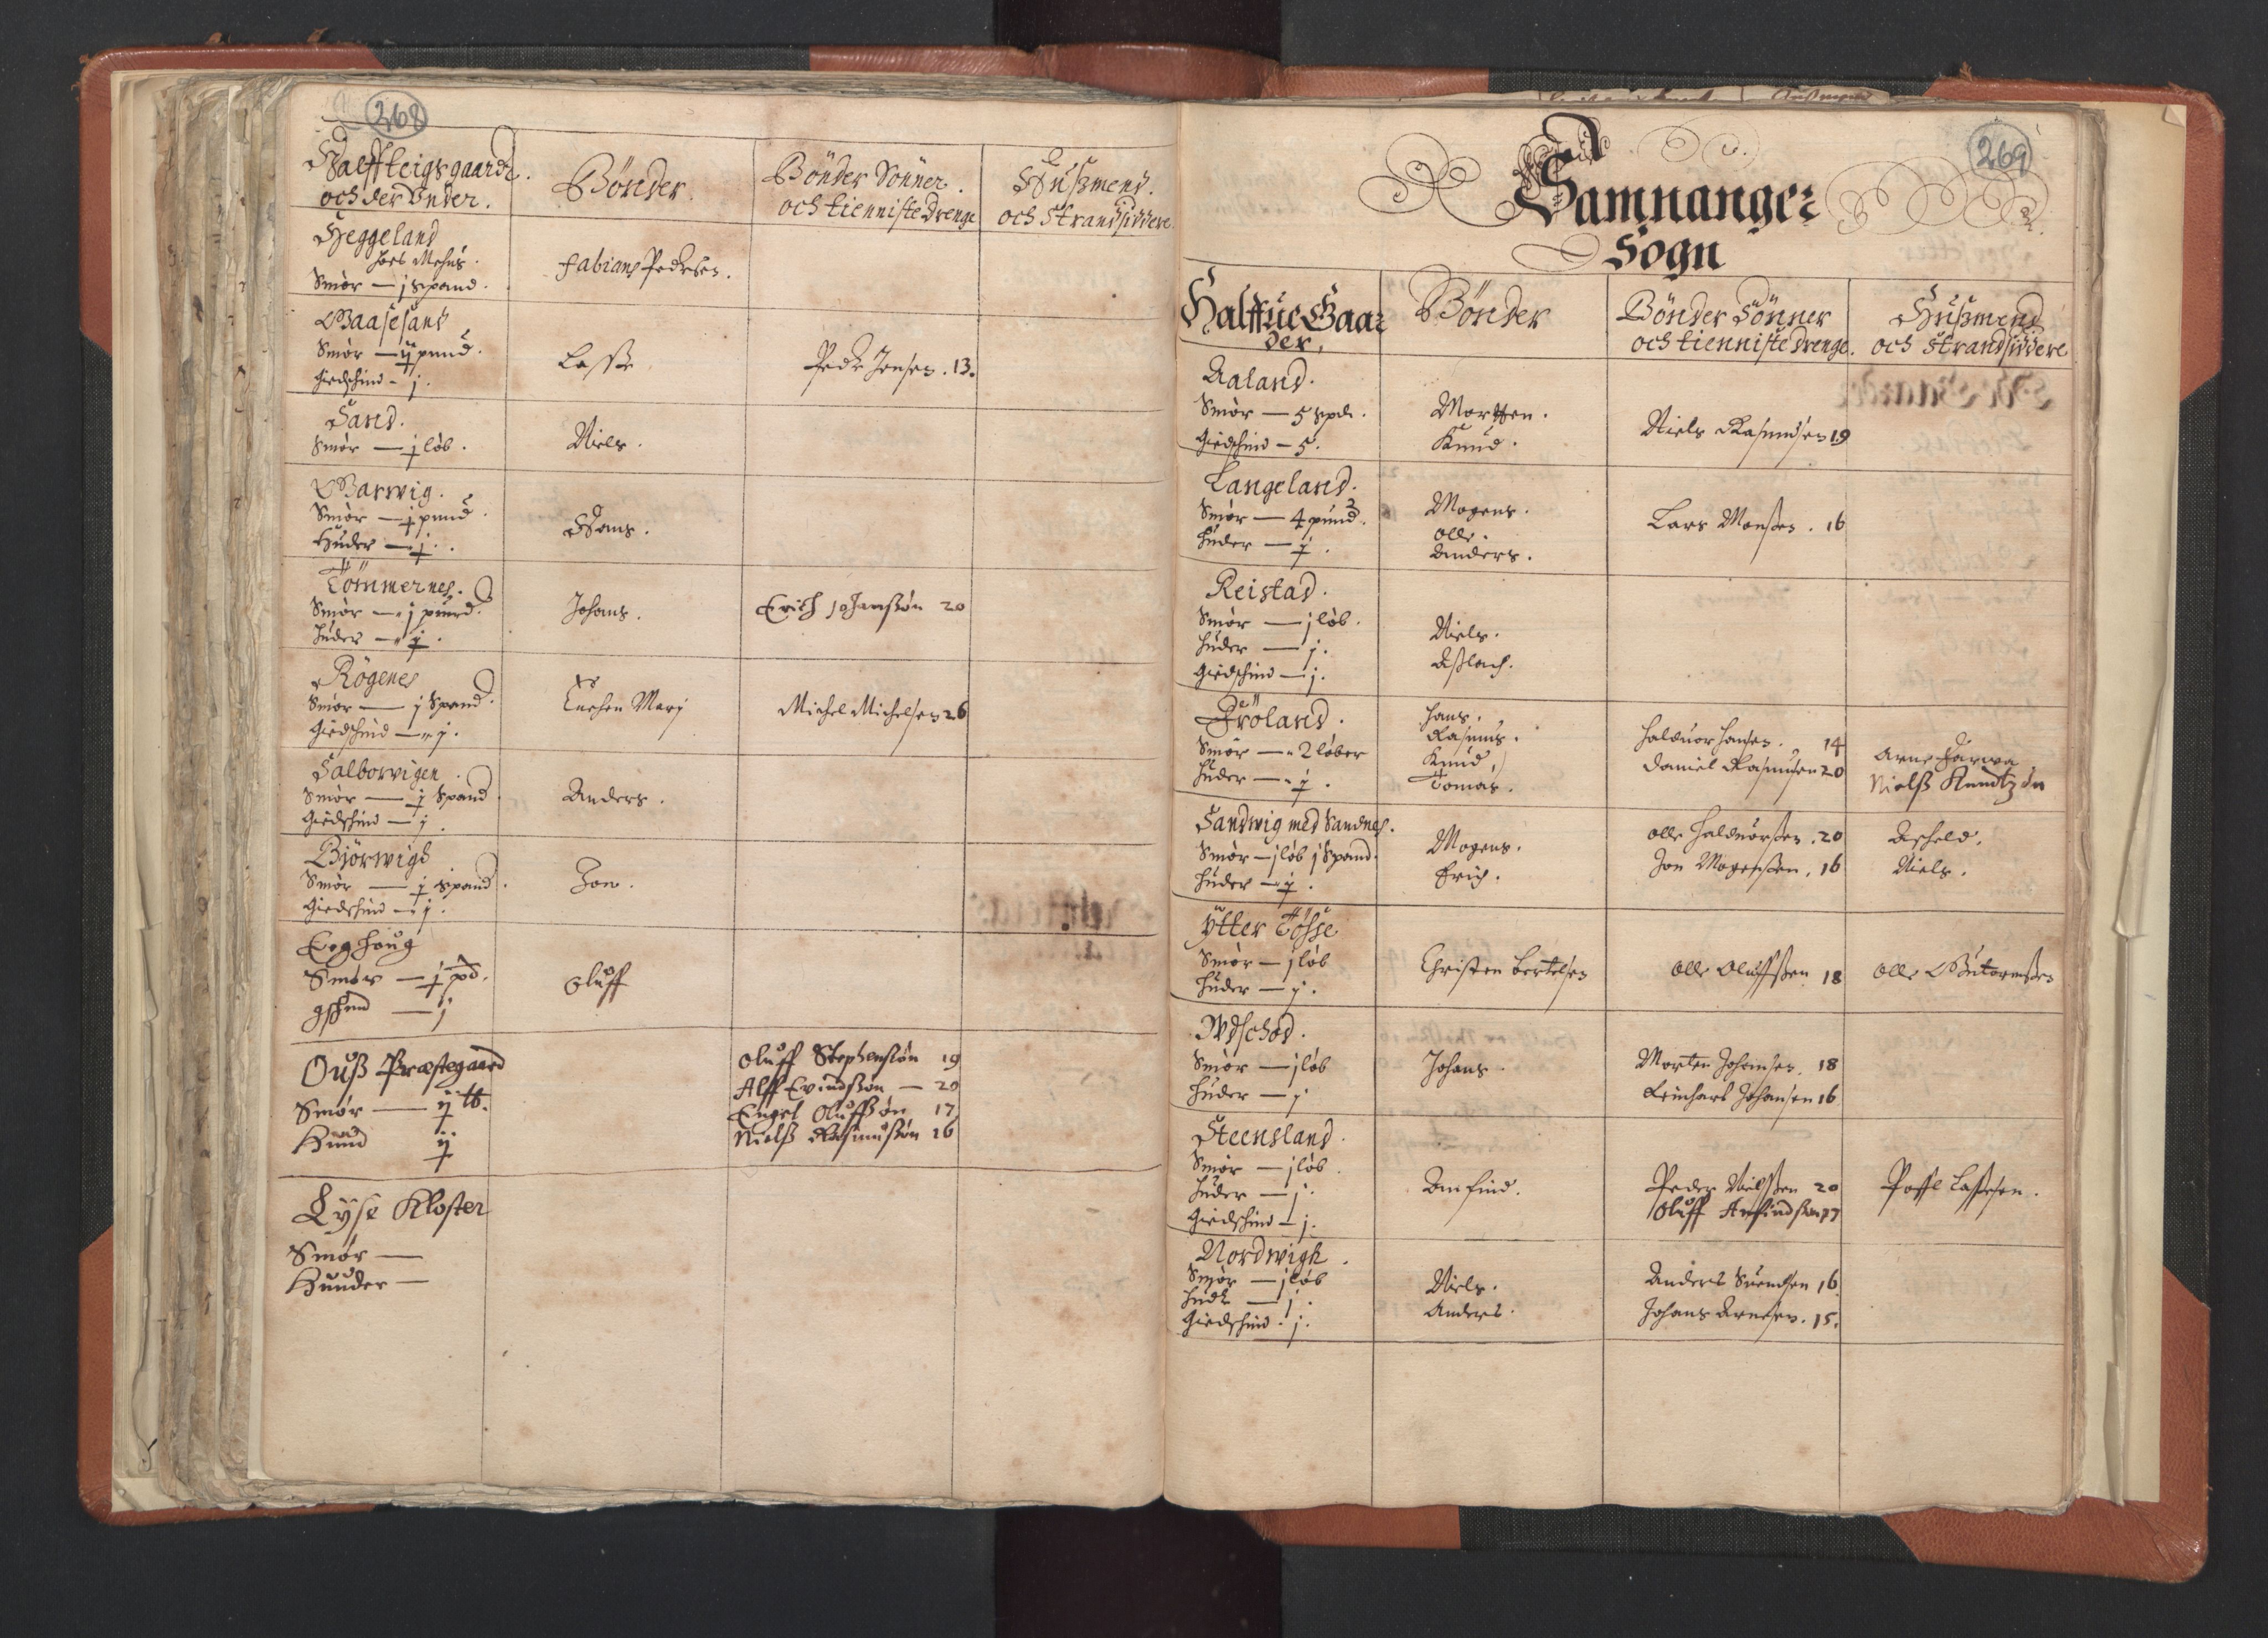 268
Halffleigsgaarde
och der Under.
Bönder.
Bönder Sönner.
och tienniste drenge
Hußmend.
och Strandsiddere
Heggeland
Smör — j spand.
Fabians Pedersen.
Gaasesand
Smör — pund.
Giedschind - j.
Lasse
Peder Jensen. 13.
Sand.
Smör — löb.
Niels.
Barwig.
Smör — pund.
Huder —
Hans.
Tömmernes.
Smör — j pund.
Huder —
Johans.
Erich Johanßön 20
Rögenes
Smör — j Spand.
Giedschind — j.
Enchen Marj
Michel Michelsen 26
Salborwigen.
Smör — Spand.
Giedschind — j.
Anders.
Björwigh
Smör — spand.
Giedschind — j.
Jon.
Eeghoug
Smör — pd.
gschind — j
Oluff
Ouß Præstegaard
Smör —
Huud
Oluff Stephensön 19
Alff Evindssön — 20
Engel Oluffsön 17
Nielß Rasmußön 16
Lyse Kloster
Smör —
Huuder —
269
Samnanger
Sogn
Halffue Gaarder.
Bönder
Bönder Sönner
och tienniste drenge.
Hußmend
och Strandsiddere
Aaland.
Smör — 5 spd.
Giedschind — 5.
Mortten.
Knud.
Niels Rasmusen 19
Langeland.
Smör — 4 pund.
Huder —
Mogens.
Olle.
Anders.
Lars Monßen. 16
Reistad.
Smör — j löb.
Huder — j.
Giedschind — j.
Niels.
Aßlach.
Fröland.
Smör — 2 löber
Huder —
Hans.
Rasmus.
Knud.
Tomas.
Halduor Hansen. 14
Daniel Rasmusen 20
Arne Farwa
Nielß Knudtzön
Sandwig med Sandnes.
Smör — j löb j Spand.
Huder —
Mogens.
Erich.
Olle Halduorßen. 20
Jon Mogensßen. 16
Asheld.
Niels.
Ytter Tösse
Smör — j löb
Huder — j.
Christen Bertelsen
Olle Oluffßen 18
Olle Gutormßen
Wdschod.
Smör — j löb
Huder — j
Johans.
Morten Johansen. 18
Reinhart Johansen 16
Steensland.
Smör — j löb.
Huder — j.
Giedschind — j.
Amfind.
Peder Nielsßen 20
Oluff Amfindßen 17
Poffl Laßesen.
Nordwigh.
Smör — j löb
Hude — j.
Giedschind. j.
Niels.
Anders.
Anders Suendsen 16
Johans Arnesen. 15.